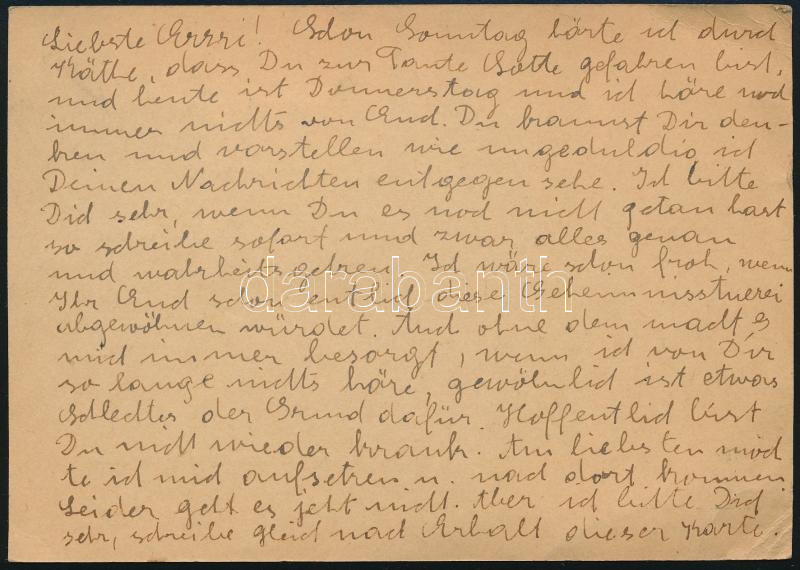 Liebste Erzsi! Schon Sonntag hörte ich durch
Käthe, dass Du zur Tante Lotte gefahren bist,
und heute ist Donnerstag und ich höre noch
immer nichts von Euch. Du kannst Dir den-
ken und vorstellen wie ungeduldig ich
Deinen Nachrichten entgegen sehe. Ich bitte
Dich sehr, wenn Du es noch nicht getan hast
so schreibe sofort und zwar alles genau
und wahrheitsgetreu. Ich wäre schon froh, wenn
Ihr Euch schon endlich diese Geheimnisstuerei
abgewöhnen würdet. Auch ohne dem macht es
mich immer besorgt, wenn ich von Dir
so lange nichts höre, gewöhnlich ist etwas
Schlechtes der Grund dafür. Hoffentlich bist
Du nicht wieder krank. Am liebsten möch
te ich mich aufsetzen u. nach dort kommen
Leider geht es jetzt nicht. Aber ich bitte Dich
sehr, schreibe gleich nach Erhalt dieser Karte.
darabanth